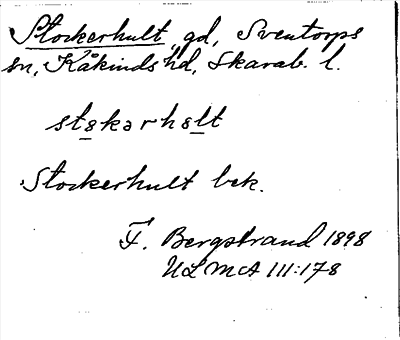 Stockerhult, gd, Sventorps
sn, Kåkinds hd, Skarab. l.
stakarhalt
Stockerhult bek.
F. Bergstrand 1898
ULMA 111:178